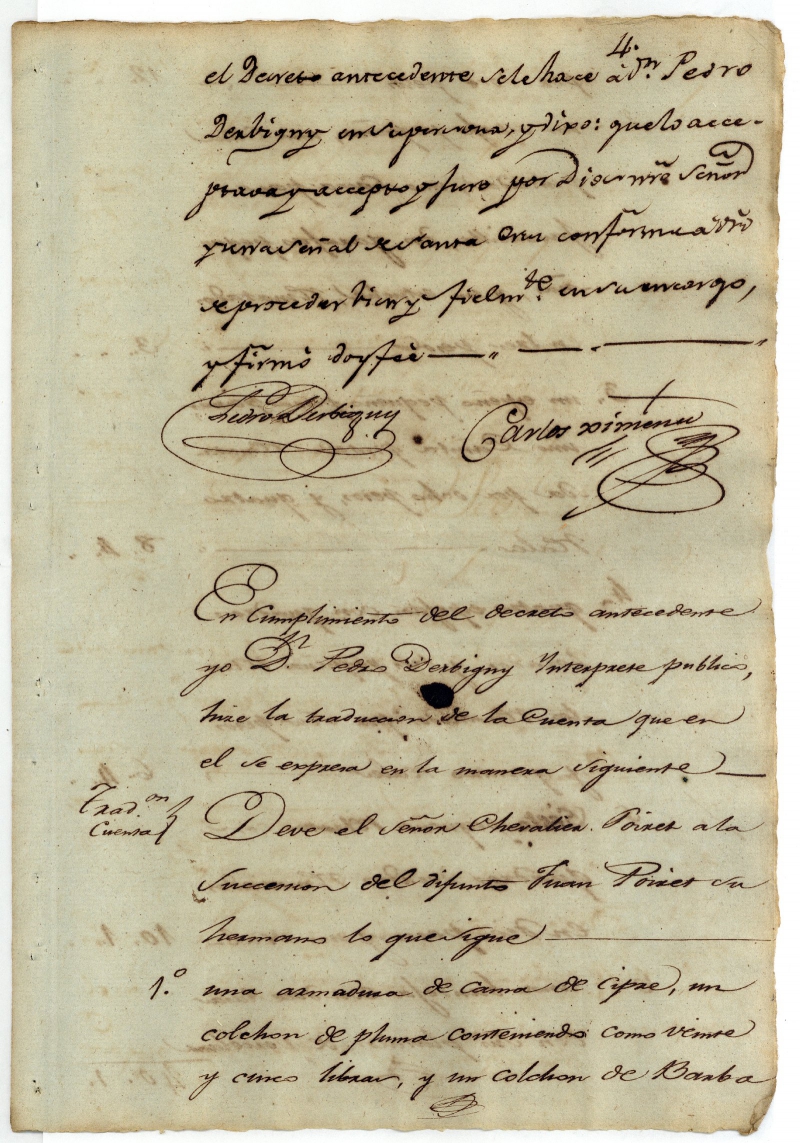 4.
el Decreto antecedente se le hace à dn. Pedro
Derbigny en su persona, y dixo: que lo acce-
ptava y accepto y Juro por Dios nrô Señor
y una señal de santa Cruz conforme a dro
de proceder bien y fielmte. en su encargo,
y firmò doy feè
Pedro Derbigny
Carlos Ximenes
En Cumplimiento del decreto antecedente
yo Dn. Pedro Derbigny Interprete publico,
hize la traduccion de la Cuenta que en
el se expresa en la manera siguiente
Tradon.
Cuenta
Deve el señor Chevalier Poiret a la
Succession del difunto Juan Poiret su
hermano lo que sigue
1.º una armadura de cama de cipre, un
colchon de pluma conteniendo como veinte
y cinco libras, y un colchon de Barba